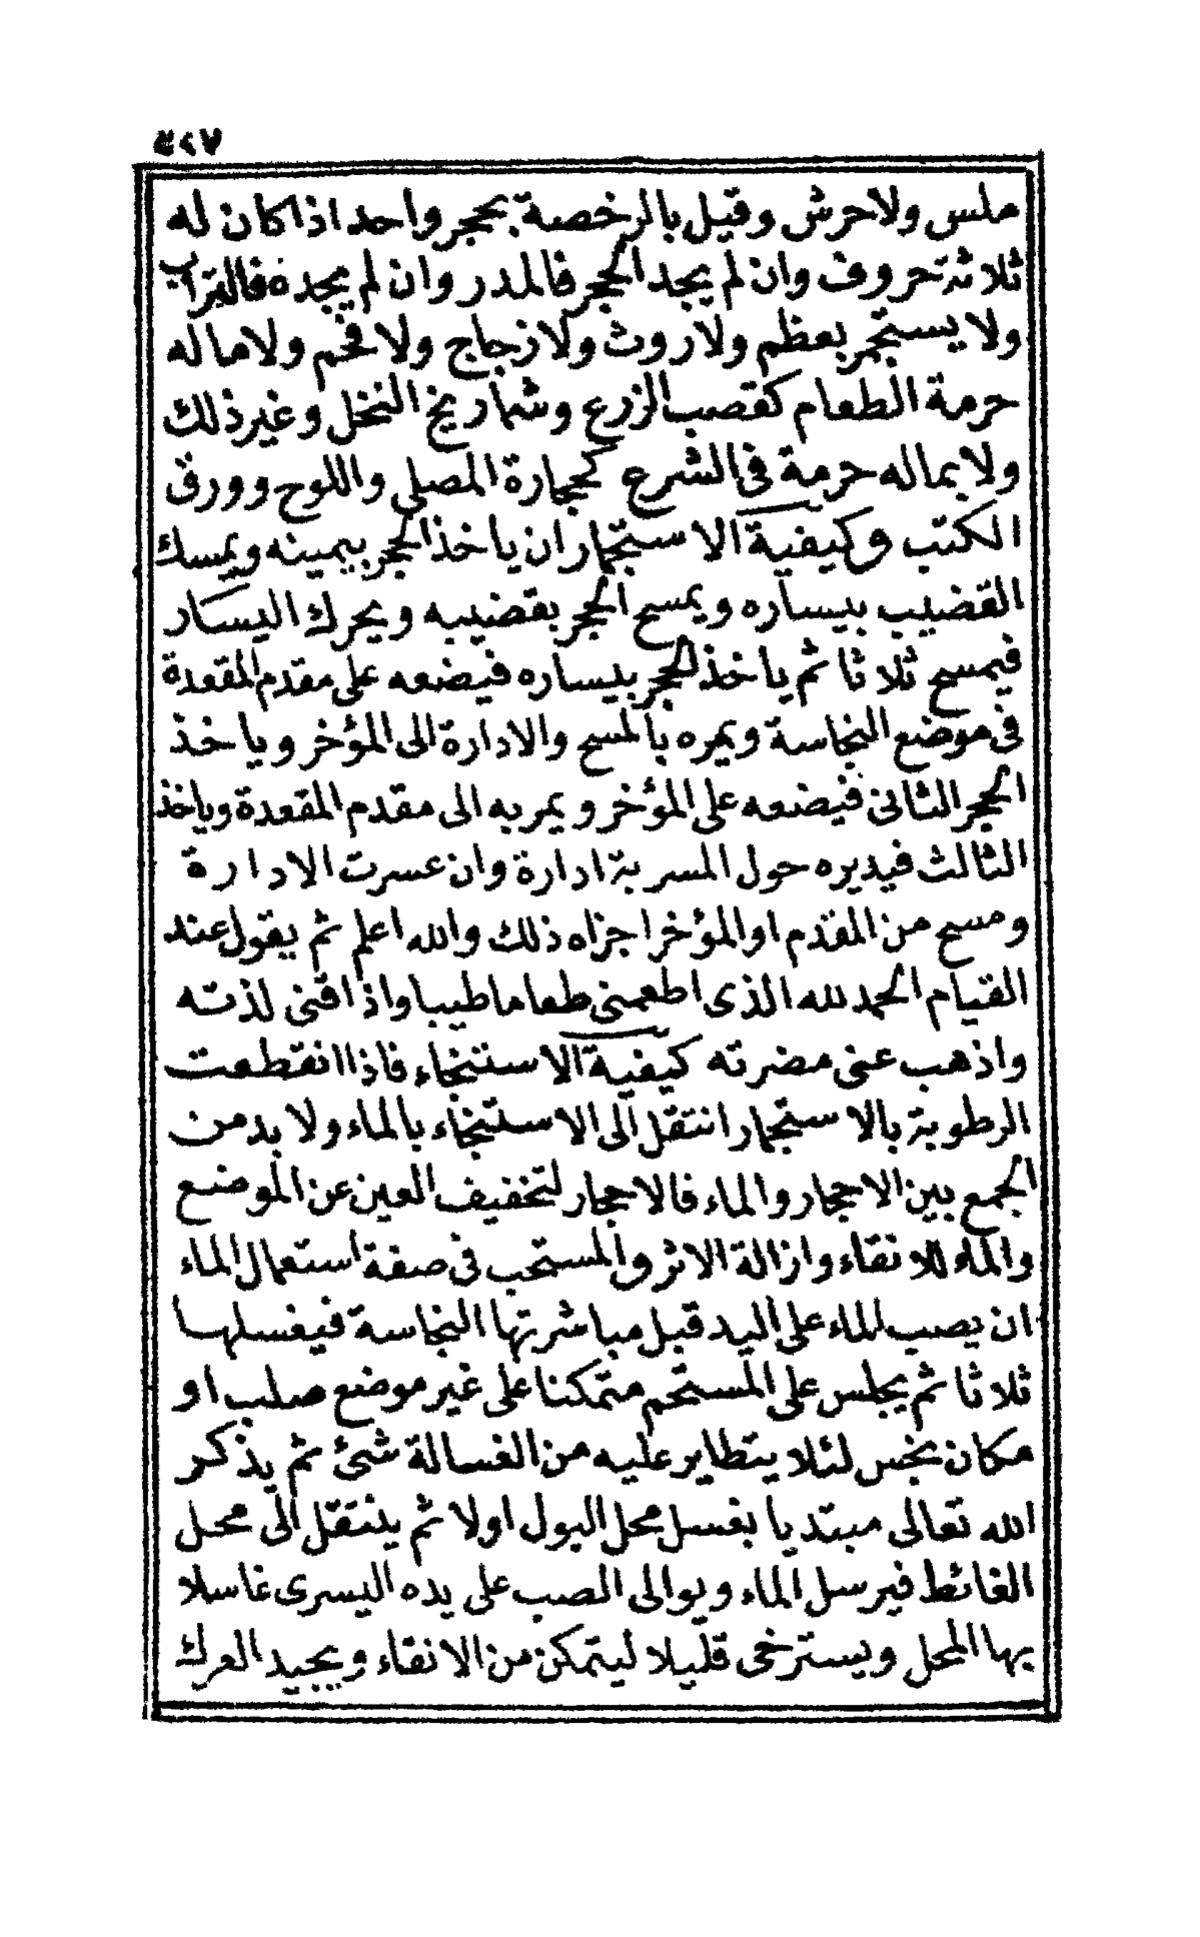 ٥٢٧
ملس ولاحرش وقيل بالرخصة بحجر واحد اذا كان له
ثلاثة حروف وان لم يجد الحجر فالمدر وان لم يجده فالتراب
ولا يستجمر بعظم ولا روث ولا زجاج ولا فحم ولا ما له
حرمة الطعام كقصب الزرع وشماريخ النخل وغير ذلك
ولا بماله حرمة فى الشرع كحجارة المصلى واللوح وورق
الكتب وكيفية الاستجمار ان ياخذ الحجر بيمينه ويمسك
القضيب بيساره ويمسح الحجر بقضيبه ويحرك اليسار
فيمسح ثلاثا ثم ياخذ الحجر بيساره فيضعه على مقدم المقعدة
فى موضع النجاسة ويمره بالمسح والادارة الى المؤخر وياخذ
الحجر الثانى فيضعه على المؤخر ويمر به الى مقدم المقعدة وياخذ
الثالث فيديره حول المسربة ادارة وان عسرت الادارة
ومسح من المقدم او المؤخر اجزاه ذلك والله اعلم ثم يقول عند
القيام الحمد لله الذى اطعمنى طعاما طيبا واذاقنى لذته
واذهب عنى مضرته كيفية الاستنجاء فاذا انقطعت
الرطوبة بالاستجمار انتقل الى الاستنجاء بالماء ولا بد من
الجمع بين الاحجار والماء فالاحجار لتخفيف العين عن الموضع
والماء للانقاء وازالة الاثر والمستحب فى صفة استعمال الماء
ان يصب الماء على اليد قبل مباشرتها النجاسة فيغسلها
ثلاثا ثم يجلس على المستحم متمكنا على غير موضع صلب او
مكان نجس لئلا يتطاير عليه من الغسالة شئ ثم يذكر
الله تعالى مبتديا بغسل محل البول اولا ثم ينتقل الى محل
الغائط فيرسل الماء ويوالى الصب على يده اليسرى غاسلا
بها المحل ويسترخى قليلا ليتمكن من الانقاء ويجيد العرك